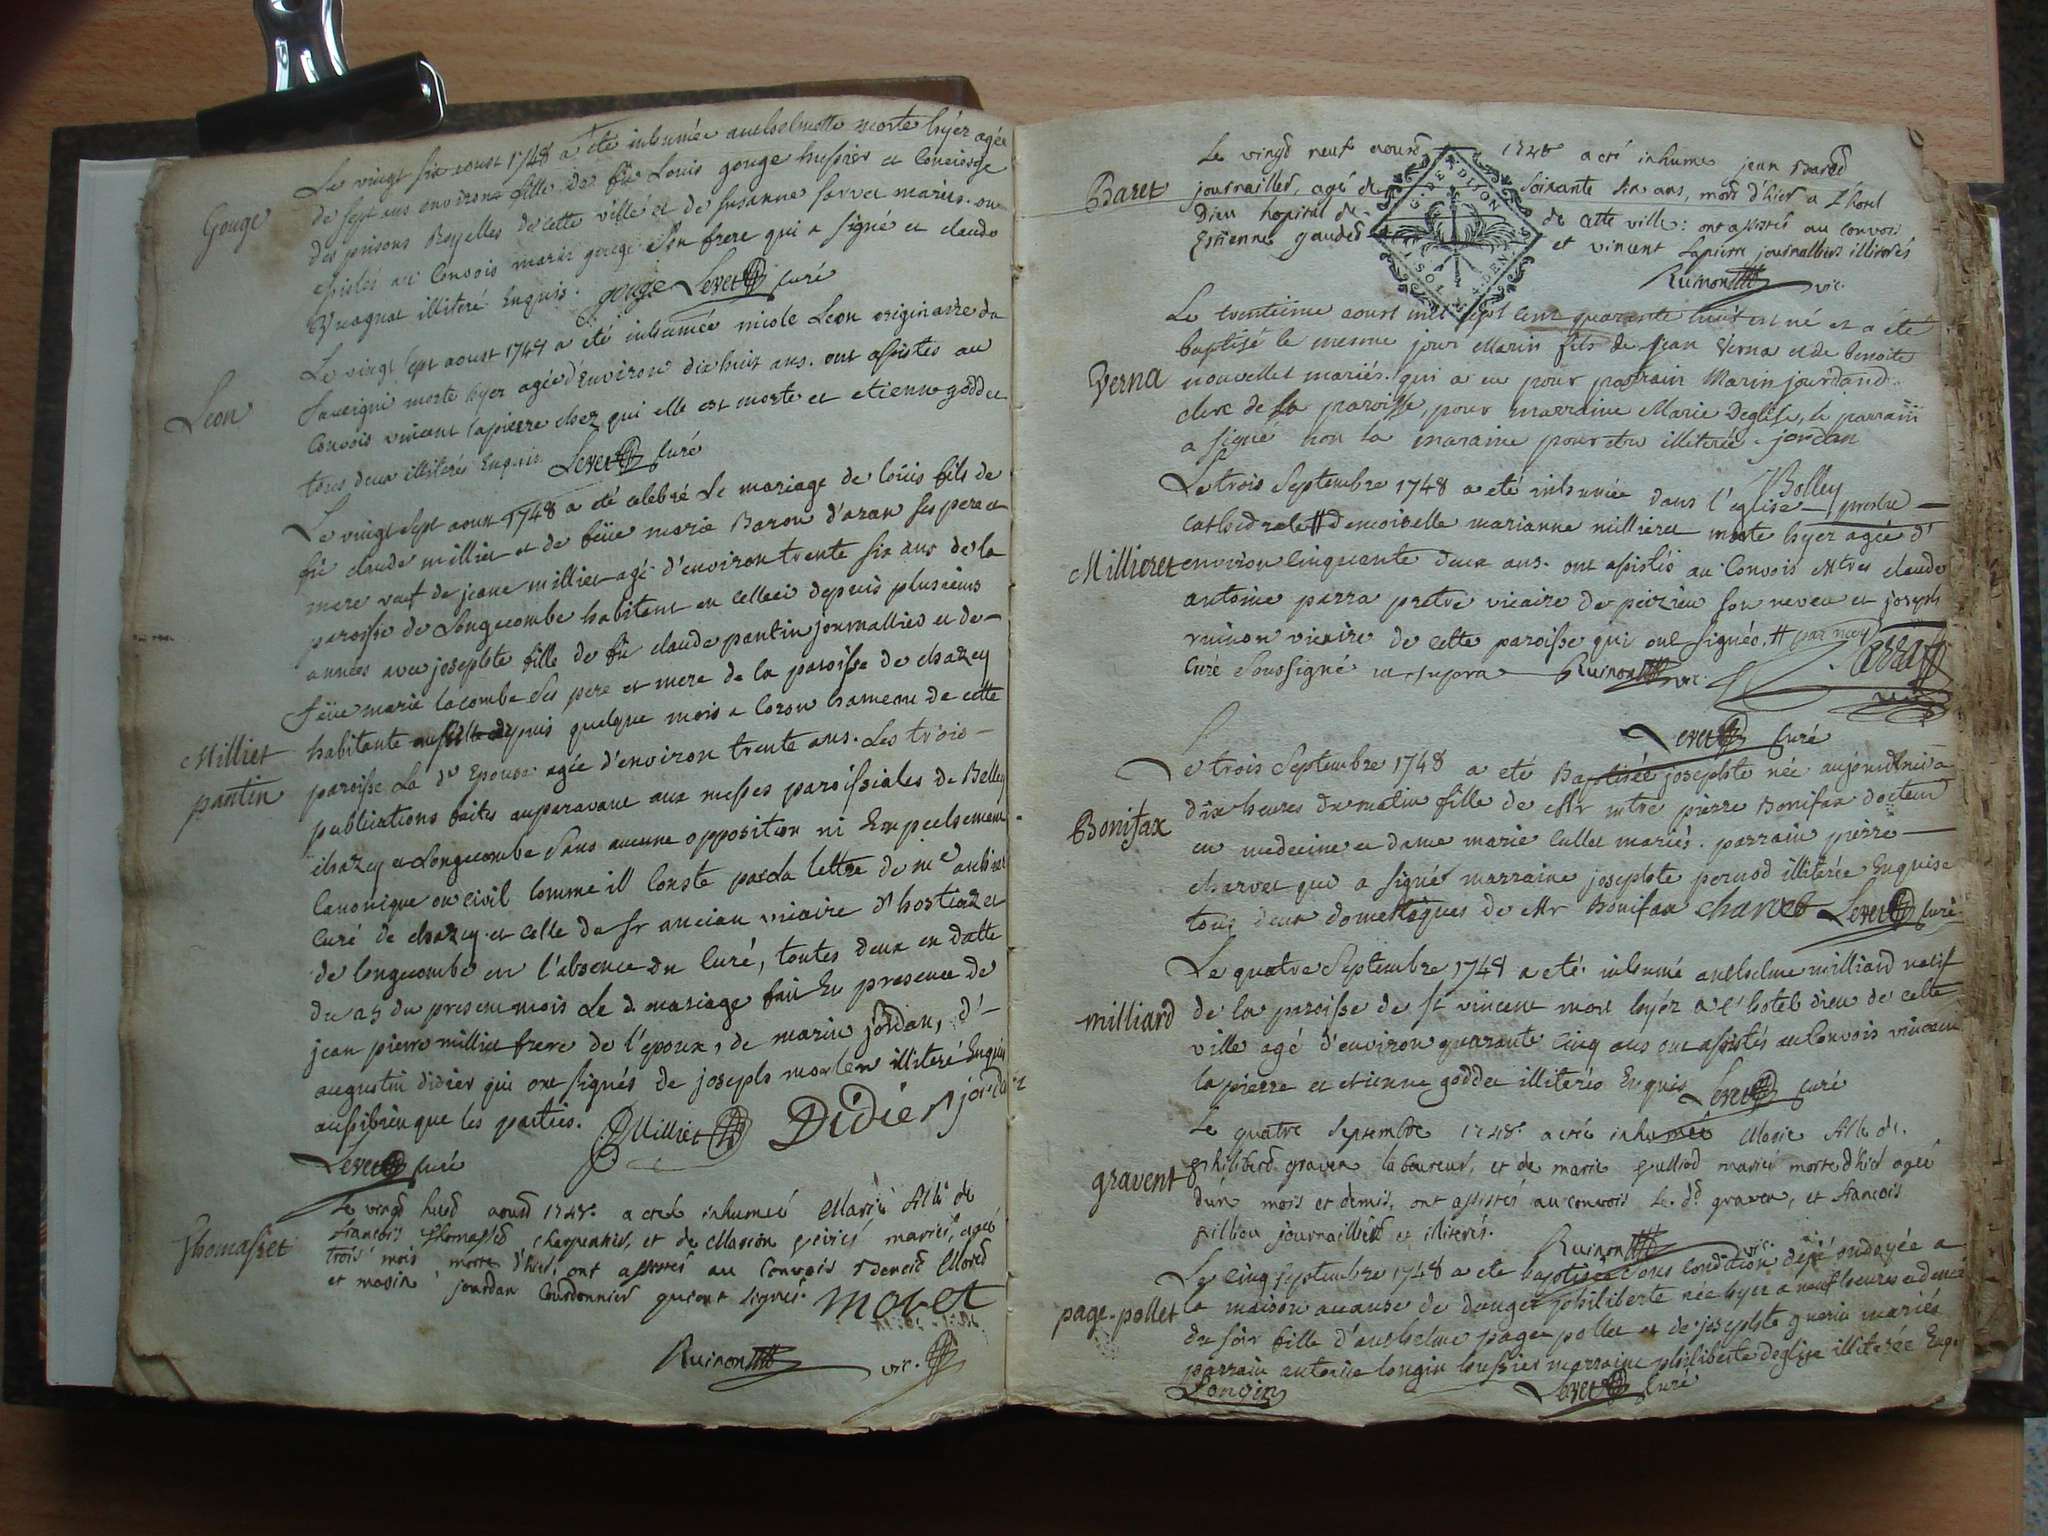 Le vingt six aoust 1748 a été inhumée anthelmette morte hyer agée
Gouge
de sept ans environ fille de fû Louis gouge hussier et Concierge
des prisons Royelles de cette ville et de susanne servet mariés. on
assistés au Convois marin gouge son frere qui a signé et claude
Vuagnat illiteré Enquis. gouge Levet curé
Le vingt sept aoust 1748 a été inhumée nicole Leon originaire de
Leon
morte hyer agée d'Environ dix huit ans. ont assistés au
Convois vincent lapierre chez qui elle est morte et etienne goddet
tous deux illiterés Enquis Levet Curé
Le vingt sept aoust 1748 a été celebré Le mariage de loüis fils de
fû claude milliet et de feüe marie Baron d'aran ses pere et
mere veuf de jeane milliet agé d'environ trente six ans de la
paroisse de Longecombe habitant en celleci depuis plusieurs
années avec josephte fille de fû claude pantin journallier et de
feüe marie lacombe ses pere et mere de la paroisse de chazey
Milliet
pantin
habitante depuis quelque mois a Coron hameau de cette
paroisse La de Epouse agée d'environ trente ans. Les trois
publications faites auparavant aux messes paroissiales de Belley
chazey et Longecombe sans aucune opposition ni Empechement
Canonique ou civil comme ill Conste par la lettre de me
Curé de chazey et celle du sr ancian vicaire d'hostiaz et
de longecombe en l'absence du Curé, toutes deux en datte
du 25 du present mois Le d. mariage fait En presence de
jean pierre milliet frere de l'epoux, de marin jordan, d'
augustin didier qui ont signés de joseph illiteré Enquis
aussibien que les parties. Milliet Didier jordan
Levet curé
Le vingt huit aoust 1748. a été inhumée Marie fille de
Thomasset
francois Thomasset charpentier, et de Marion mariés, agée
trois mois morte d'hier, ont assistés au Convois Benoit Moret
et marin jourdan Courdonnier qui ont signés. moret
Ruinon vic.
Le vingt neuf aoust 1748 a été inhumé jean Baret
Baret
journaillier, agé de soixante six ans, mort d'hier a l'hotel
Dieu hopital de de cette ville: ont assistés au convois
Estienne gaudet et vincent Lapierre journalliers illiterés
Ruinon vic.
Le trentieme aoust mil sept cent quarante huit est né et a été
baptisé le mesme jour Marin fils de jean Verna et de benoite
Verna
nouvellet mariés. qui a eu pour parrain Marin jourdand
clerc de la paroisse, pour marraine Marie Deglise, le parrain
a signé non la maraine pour etre illiterée. jordan
Bolley
Le trois Septembre 1748 a été inhumée dans l'eglise
cathedrale # demoiselle marianne millieret morte hyer agée d'
Millieret
environ Cinquante deux ans. ont assistés au Convois Mtres claude
antoine parra pretre vicaire de peirieu son neveu et joseph
ruinon vicaire de cette paroisse qui ont signés. # par moy
Curé soussigné ut supra Ruinon vic. Parra
Levet Curé
Le trois Septembre 1748 a été Baptisée josephte née aujourdhui a
dix heures du matin fille de Mr mtre pierre Bonifax docteur
Bonifax
en medecine et dame marie Cullet mariés. parrain pierre
charvet qui a signé marraine josephte pernod illiterée Enquise
tous deux domestiques de Mr Bonifax charvet Levet curé
Le quatre Septembre 1748 a été inhumé anthelme milliard natif
milliard
de la paroisse de st vincent mort hyer a l'hotel dieu de cette
ville agé d'environ quarante cinq ans ont assistés au Convois vincent
lapierre et etienne goddet illiterés Enquis Levet Curé
Le quatre Septembre 1748. a été inhumée Marie fille de
gravent
Philibert graven laboureur, et de marie mariés morte d'hier agée
d'un mois et demis, ont assistés au convois Le dt graven, et francois
Billion journaillier et illiterés.
Ruinon vic.
Le Cinq septembre 1748 a été baptisée sous condition dejé ondoyée a
page-pollet
la maison a cause de danger philiberte née hyer a neuf heures et demie
du soir fille d'anthelme page pollet et de josephte guerin mariés
parrain antoine longin hussier marraine philiberte deglise illiterée Enq.
Longin Levet curé